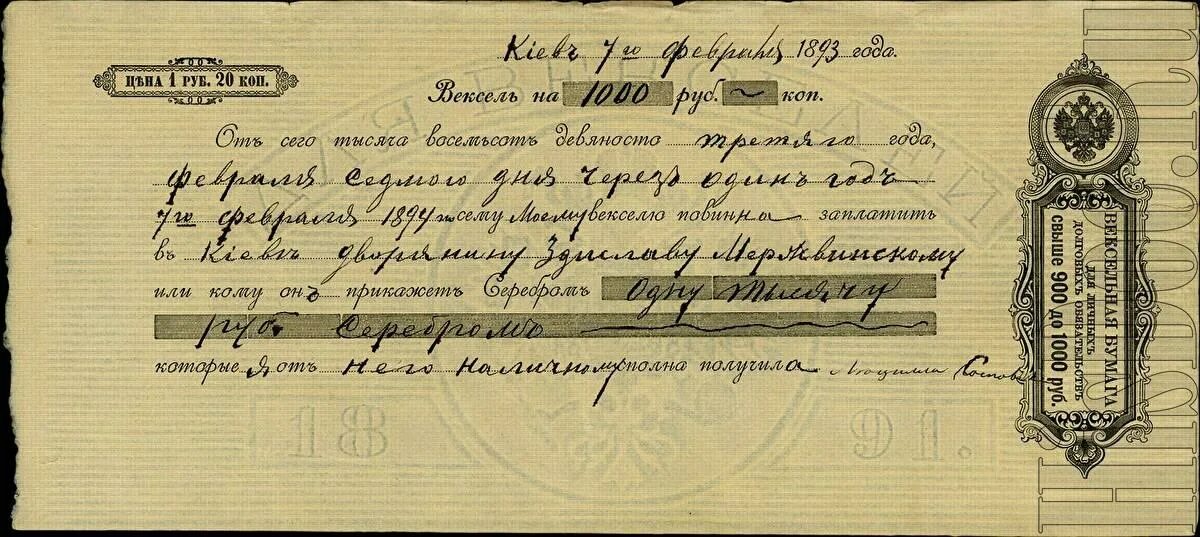 Кіевъ 7го февраля 1893 года.
ЦѢНА 1 РУБ. 20 КОП.
Вексель на 1000 руб. ~ коп.
Отъ сего тысяча восемьсотъ девяносто третяго года,
февраля седмого дня черезъ одинъ годъ
7го февраля 1894 по сему Моему векселю повинна заплатить
въ Кіевѣ дворянину Здиславу Мержвинскому
или кому онъ прикажетъ Серебромъ Одну тысячу
руб. Серебромъ
которые я отъ него наличному сполна получила Людмила
ВЕКСЕЛЬНАЯ БУМАГА
ДЛЯ ЛИЧНЫХЪ
ДОЛГОВЫХЪ ОБЯЗАТЕЛЬСТВЪ
СВЫШЕ 900 ДО 1000 РУБ.
ДЛЯ ВЕКСЕЛЕЙ
18 91.